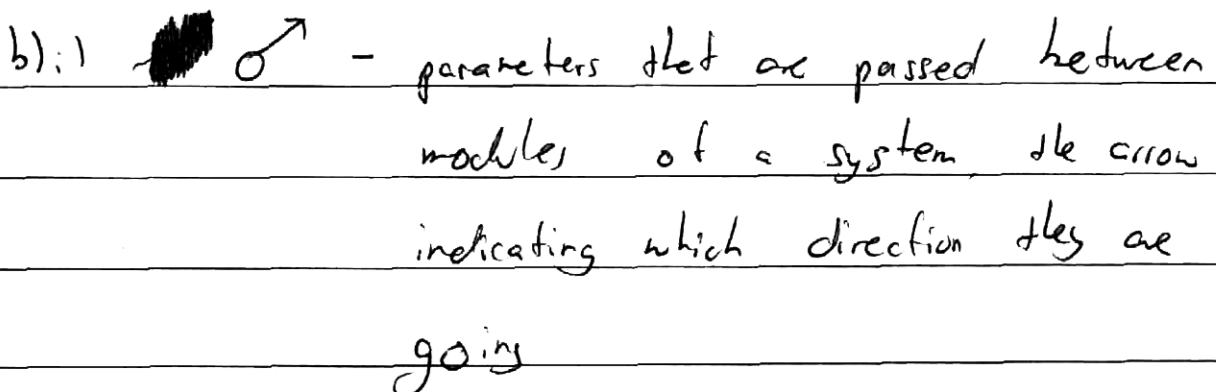 b)i) - parameters that are passed between
modules of a system the arrow
indicating which direction they are
going